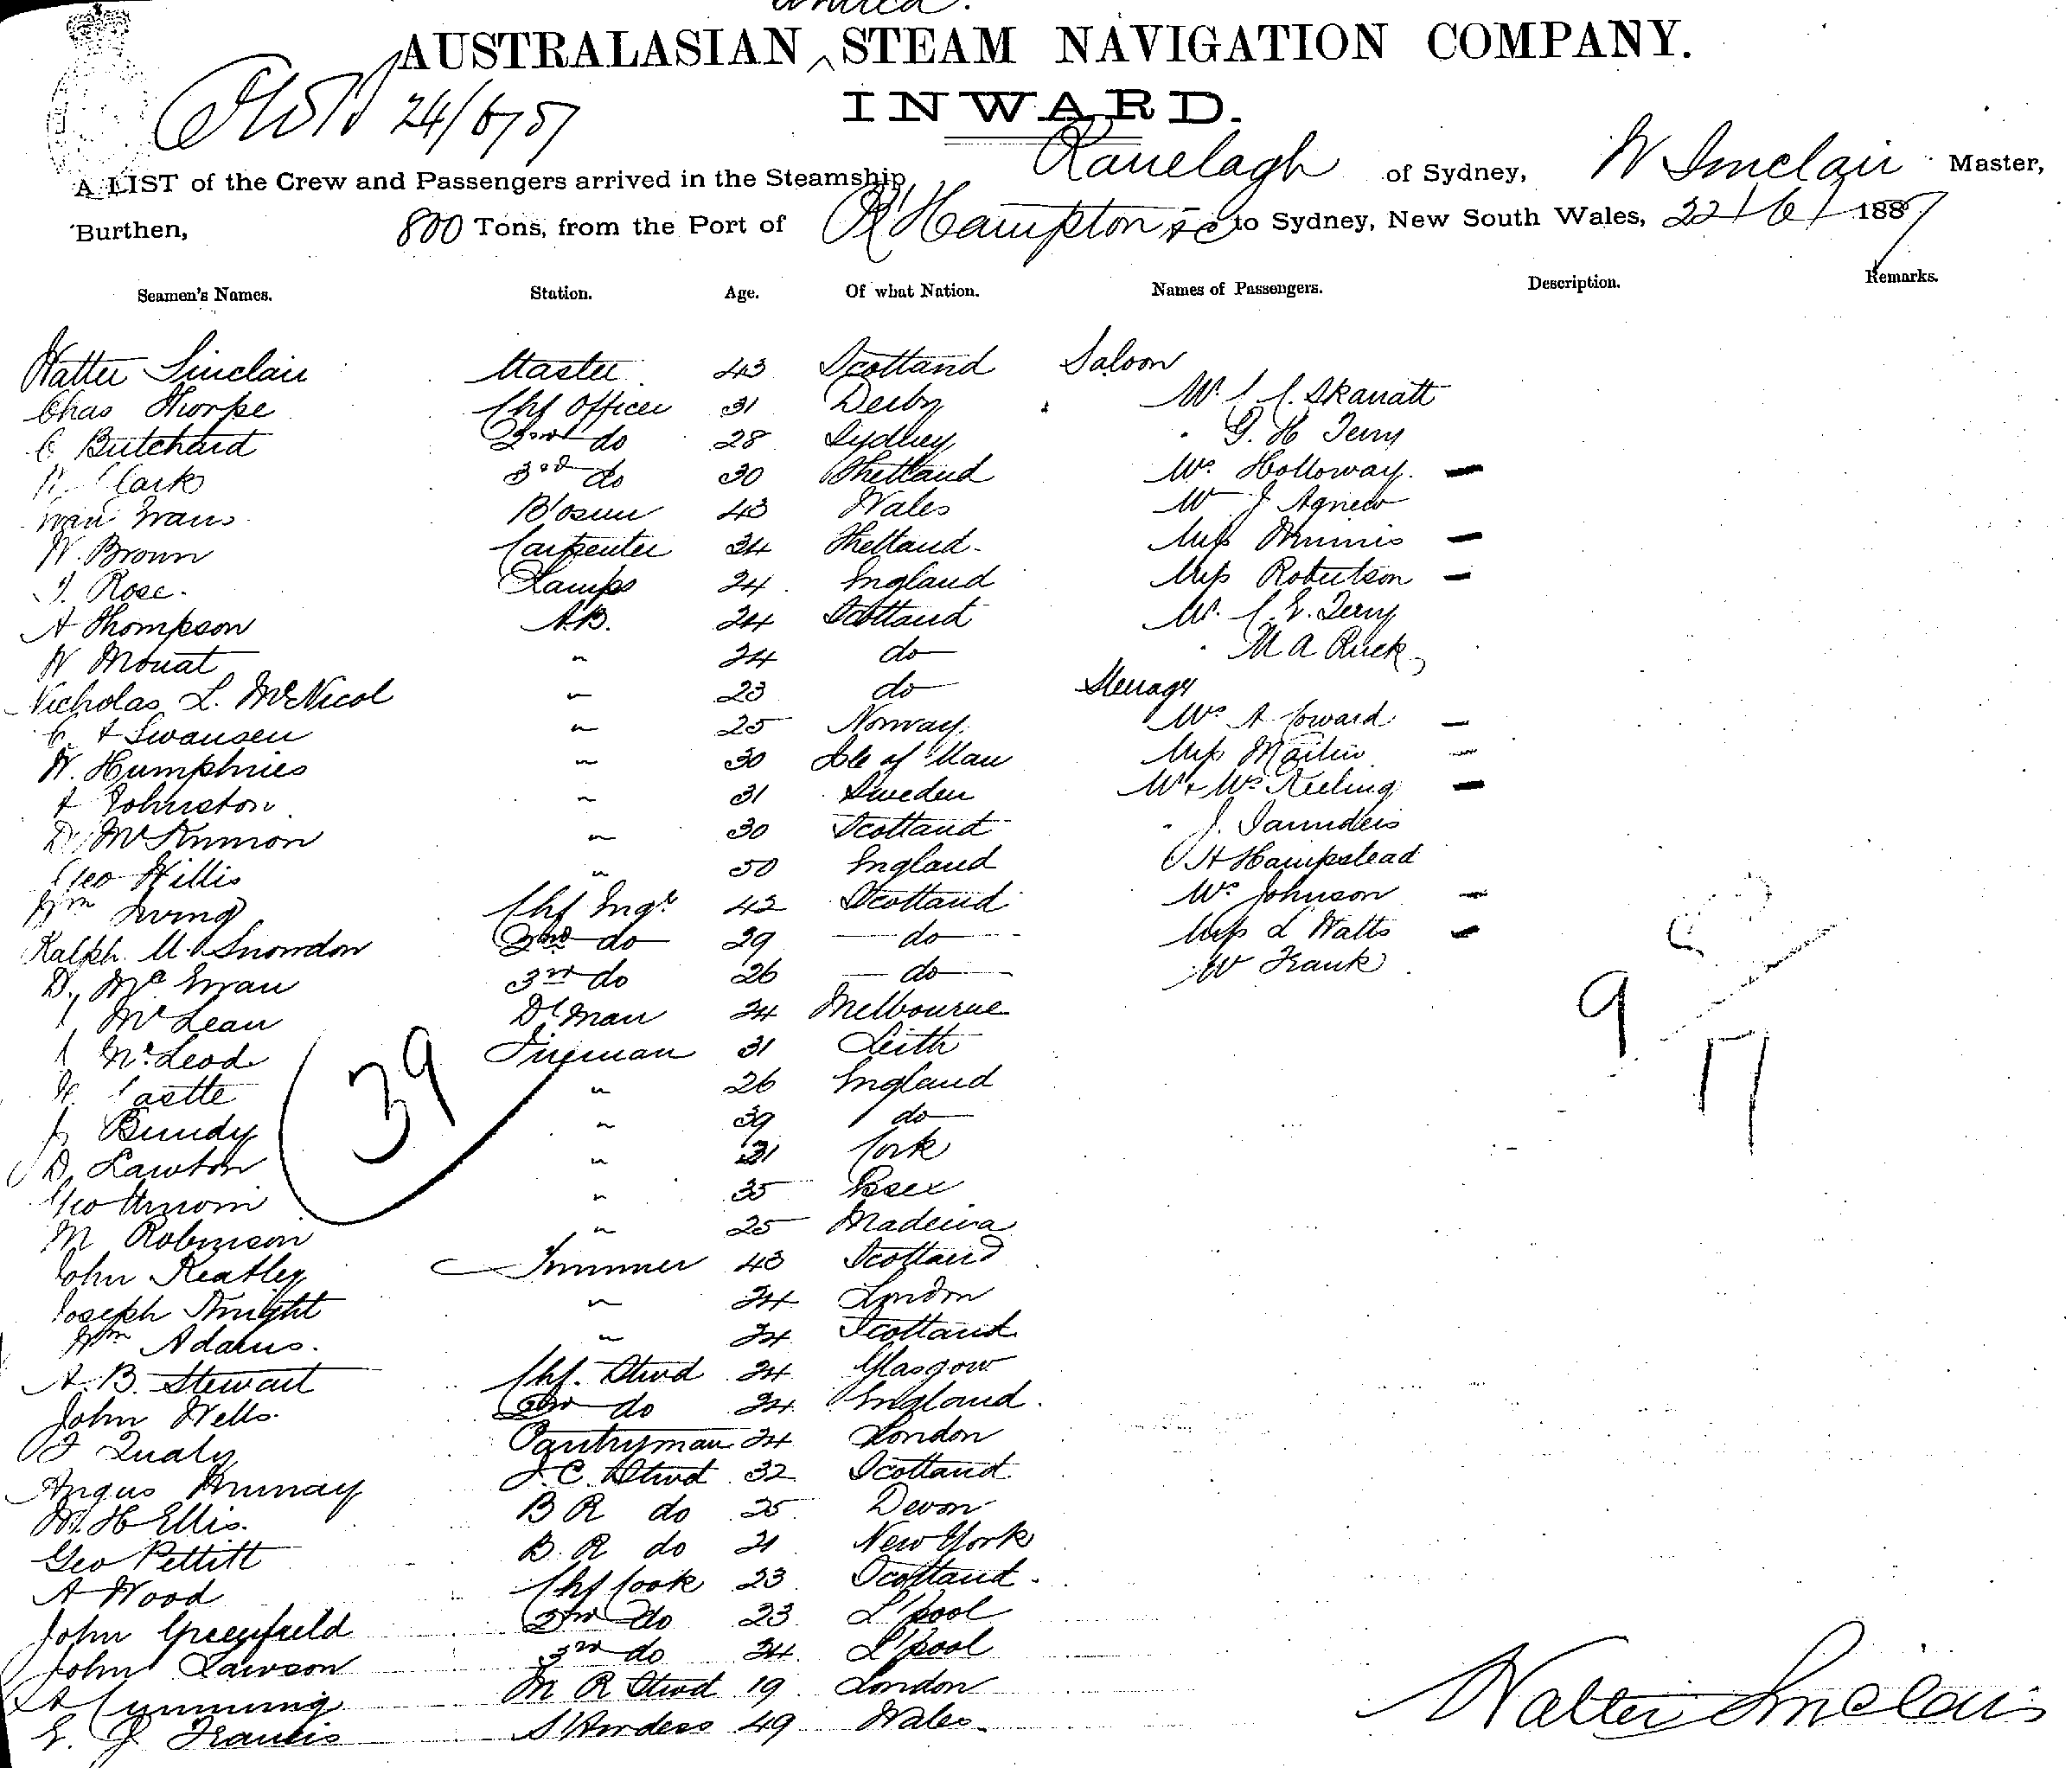 United
AUSTRALASIAN ‸ STEAM NAVIGATION COMPANY.
24/6/87
INWARD.
A LIST of the Crew and Passengers arrived in the Steamship Ranelagh of Sydney, W Sinclair Master,
Burthen, 800 Tons, from the Port of R'Hampton &c to Sydney, New South Wales, 22/6/1887
Seamen's Names. Station. Age. Of what Nation. Names of Passengers. Description. Remarks.
Walter Sinclair Master 43 Scotland Saloon
Chas Thorpe Chf Officer 31 Derby Mr C. C. Skarratt
C Butchard 2nd do 28 Sydney " G. H Terry
Clark 3rd do 30 Shetland Mrs Holloway –
Evan Evans B'osun 43 Wales Mr J Agnew
W. Brown Carpenter 34 Shetland Miss –
J. Rose Lamps 24 England Miss Robertson –
A Thompson A.B. 24 Scotland Mr C. E. Terry
W Mouat " 24 do " M A Ruck
Nicholas L. McNicol " 23 do Steerage
C A Swansen " 25 Norway Mrs A Coward –
W. Humphries " 30 Isle of Man Miss Martin –
A Johnston " 31 Sweden Mr & Mrs Keeling –
D. McKinnon " 30 Scotland " J. Saunders
Geo Willis " 50 England C H Hampstead
Wm Irving Chf Engr 42 Scotland Mrs Johnson –
Ralph M. Snowdon 2nd do 29 do Miss L Watts –
D. McEwan 3rd do 26 do W Frank
McLean Dk man 24 Melbourne 9
McLeod Fireman 31 Leith 17
W. Castle " 26 England
39
J Bundy " 39 do
D. Lawton " 31 York
Geo " 35 Essex
M Robinson " 25 Madeira
John Keatley Trimmer 43 Scotland
Joseph Knight " 24 London
Wm Adams. " 24 Scotland
A. B. Stewart Chf. Stwd 24 Glasgow
John Wells 2nd do 24 England.
J Qualy Pantryman 24 London
Angus Murray F. C. Stwd 32 Scotland
W. H Ellis. B R do 25 Devon
Geo Pettitt B. R do 21 New York
A Wood Chf Cook 23 Scotland.
John Greenfield 2nd do 23 L'pool
John Lawson 3rd do 24 L'pool
A Cumming M R Stwd 19 London
E. J Francis S'ardess 49 Wales
Walter Sinclair